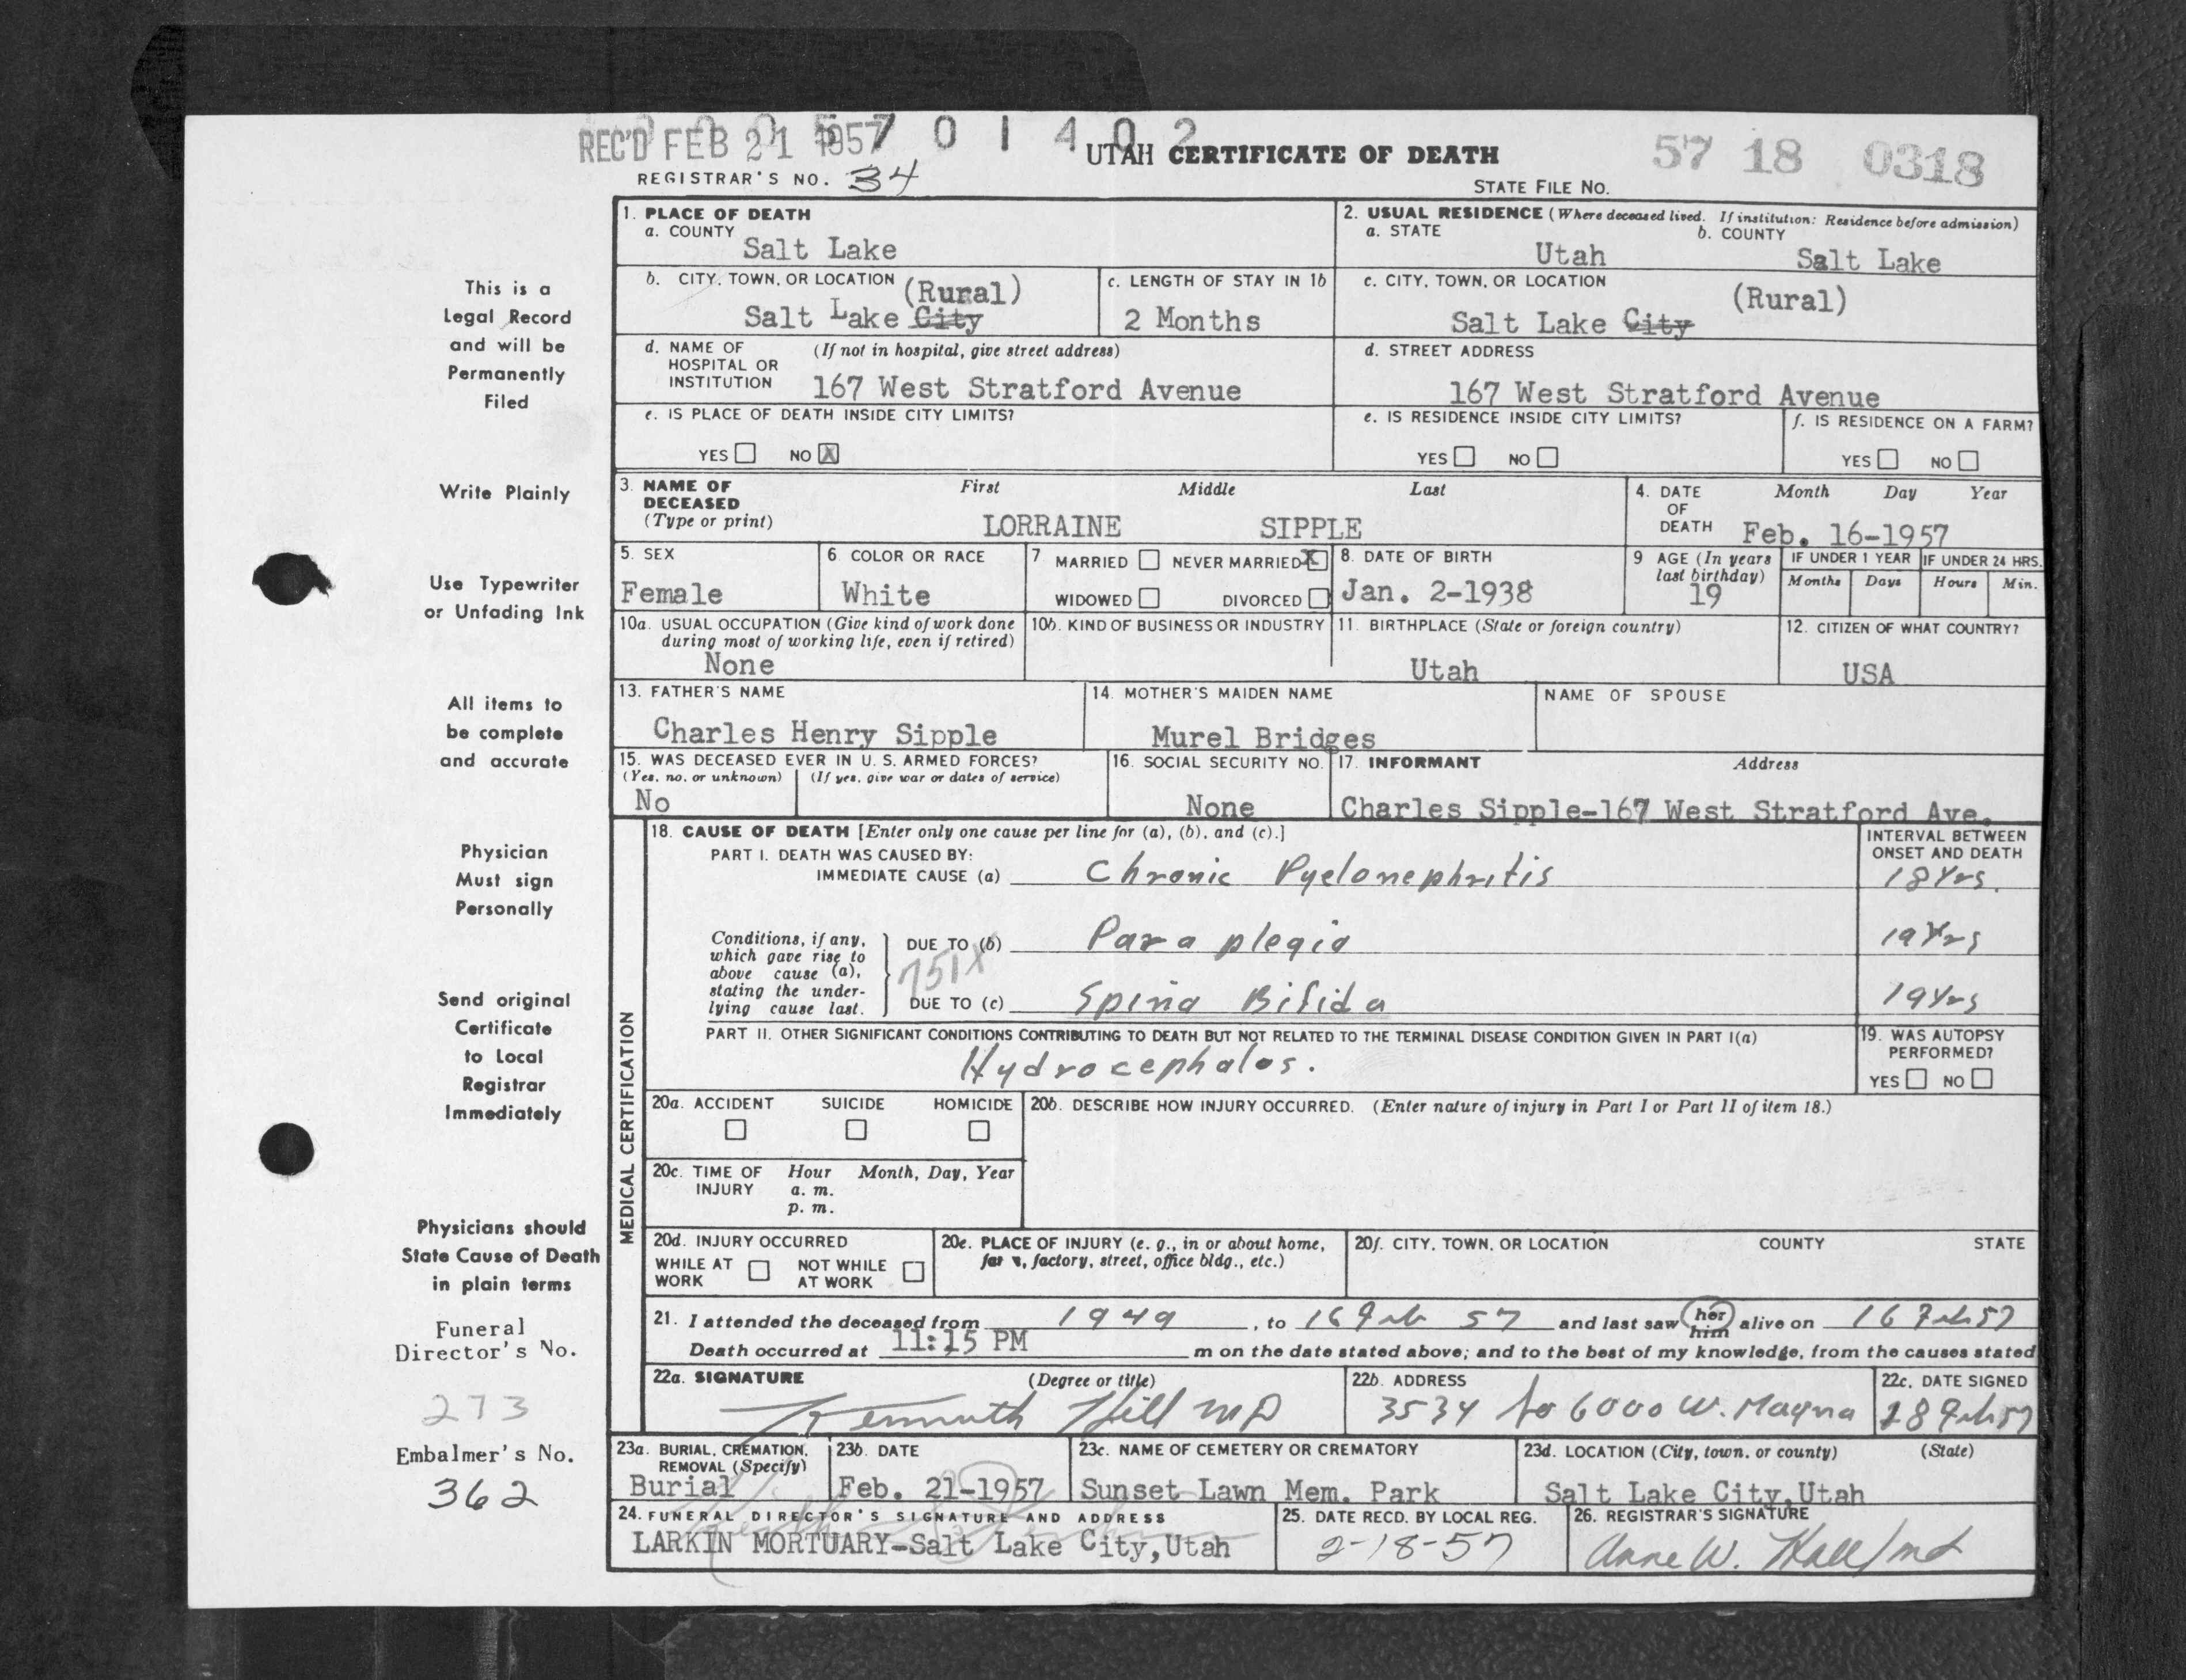 REC'D FEB 21 1957
0 0 0 5 7 0 1 4 0 2
UTAH CERTIFICATE OF DEATH
57 18 0318
REGISTRAR'S NO. 34
STATE FILE NO.
This is a
Legal Record
and will be
Permanently
Filed
Write Plainly
Use Typewriter
or Unfading Ink
All items to
be complete
and accurate
Physician
Must sign
Personally
Send original
Certificate
to Local
Registrar
Immediately
Physicians should
State Cause of Death
in plain terms
Funeral
Director's No.
273
Embalmer's No.
362
1. PLACE OF DEATH
a. COUNTY
Salt Lake
2. USUAL RESIDENCE (Where deceased lived. If institution: Residence before admission)
a. STATE b. COUNTY
Utah Salt Lake
b. CITY, TOWN, OR LOCATION (Rural)
Salt Lake City
c. LENGTH OF STAY IN 1b
2 Months
c. CITY, TOWN, OR LOCATION (Rural)
Salt Lake City
d. NAME OF (If not in hospital, give street address)
HOSPITAL OR
INSTITUTION 167 West Stratford Avenue
d. STREET ADDRESS
167 West Stratford Avenue
e. IS PLACE OF DEATH INSIDE CITY LIMITS?
YES NO X
e. IS RESIDENCE INSIDE CITY LIMITS?
YES NO
f. IS RESIDENCE ON A FARM?
YES NO
3. NAME OF First Middle Last
DECEASED
(Type or print) LORRAINE SIPPLE
4. DATE Month Day Year
OF
DEATH Feb. 16-1957
5. SEX
Female
6. COLOR OR RACE
White
7 MARRIED NEVER MARRIED X
WIDOWED DIVORCED
8. DATE OF BIRTH
Jan. 2-1938
9 AGE (In years
last birthday)
19
IF UNDER 1 YEAR IF UNDER 24 HRS.
Months Days Hours Min.
10a. USUAL OCCUPATION (Give kind of work done
during most of working life, even if retired)
None
10b. KIND OF BUSINESS OR INDUSTRY
11. BIRTHPLACE (State or foreign country)
Utah
12. CITIZEN OF WHAT COUNTRY?
USA
13. FATHER'S NAME
Charles Henry Sipple
14. MOTHER'S MAIDEN NAME
Murel Bridges
NAME OF SPOUSE
15. WAS DECEASED EVER IN U. S. ARMED FORCES?
(Yes, no, or unknown) (If yes, give war or dates of service)
No
16. SOCIAL SECURITY NO.
None
17. INFORMANT Address
Charles Sipple-167 West Stratford Ave.
MEDICAL CERTIFICATION
18. CAUSE OF DEATH [Enter only one cause per line for (a), (b), and (c).]
INTERVAL BETWEEN
ONSET AND DEATH
PART I. DEATH WAS CAUSED BY:
IMMEDIATE CAUSE (a) Chronic Pyelonephritis 18 Yrs.
Conditions, if any,
which gave rise to
above cause (a),
stating the under-
lying cause last.
DUE TO (b) Paraplegia 19 Yrs
751X
DUE TO (c) Spina Bifida 19 Yrs
PART II. OTHER SIGNIFICANT CONDITIONS CONTRIBUTING TO DEATH BUT NOT RELATED TO THE TERMINAL DISEASE CONDITION GIVEN IN PART I(a)
Hydrocephalos.
19. WAS AUTOPSY
PERFORMED?
YES NO
20a. ACCIDENT SUICIDE HOMICIDE
20b. DESCRIBE HOW INJURY OCCURRED. (Enter nature of injury in Part I or Part II of item 18.)
20c. TIME OF Hour Month, Day, Year
INJURY a. m.
p. m.
20d. INJURY OCCURRED
WHILE AT NOT WHILE
WORK AT WORK
20e. PLACE OF INJURY (e. g., in or about home,
farm, factory, street, office bldg., etc.)
20f. CITY, TOWN, OR LOCATION COUNTY STATE
21. I attended the deceased from 1949, to 16 Feb 57 and last saw her him alive on 16 Feb 57
Death occurred at 11:15 PM m on the date stated above; and to the best of my knowledge, from the causes stated
22a. SIGNATURE (Degree or title)
Kenneth Hill MD
22b. ADDRESS
3534 So 6000 W. Magna
22c. DATE SIGNED
18 Feb 57
23a. BURIAL, CREMATION,
REMOVAL (Specify)
Burial
23b. DATE
Feb. 21-1957
23c. NAME OF CEMETERY OR CREMATORY
Sunset Lawn Mem. Park
23d. LOCATION (City, town, or county) (State)
Salt Lake City, Utah
24. FUNERAL DIRECTOR'S SIGNATURE AND ADDRESS
LARKIN MORTUARY-Salt Lake City, Utah
25. DATE RECD. BY LOCAL REG.
2-18-57
26. REGISTRAR'S SIGNATURE
Anne W.